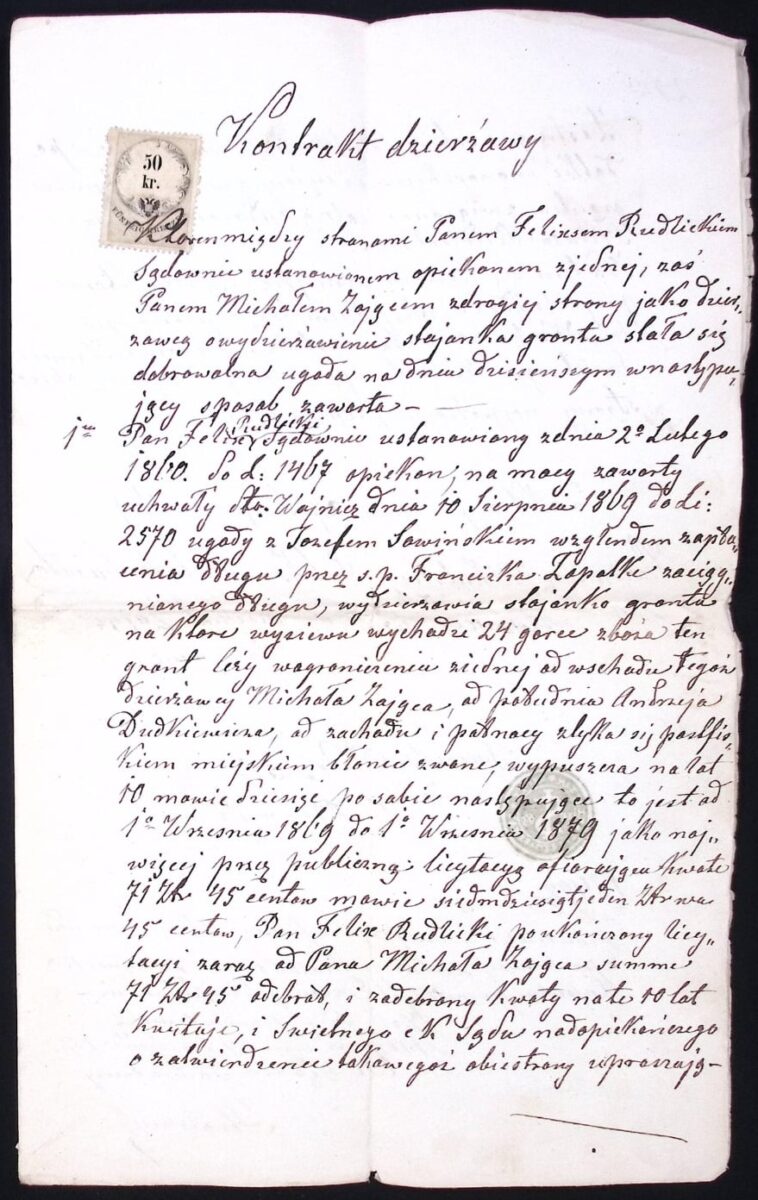 Kontrakt dzierżawy
50
kr.
Którenmiędzy stronami Panem Felixsem Rudlickiem
Sądownie ustanowionem opiekonem zjednej, zaś
Panem Michałem Zającem zdrogiej strony jako dzier,
zawcą owydzierżawienie stajanka grontu stała się
dobrowolna ugoda na dniu dzisieńszym wnastępu,
jący sposób zawarta —
1mo Pan Felix Rudlicki Sądownie ustanowiony zdnia 2º Lutego
1860. do L: 1467 opiekon, na mocy zawarty
uchwały dto. Wojnicz dnia 10 Sierpnia 1869 do Li:
2570 ugody z Jozefem Sowińskiem wzglendem zapła,
cenia długu przez s.p. Franciszka Zapałke zaciąg,
nionego długu, wydzierzawia stajanko grontu
na ktore wysiewu wychodzi 24 garce zbóża ten
gront leży wograniczeniu ziednej od wschodu tegoż
dzierżawcy Michała Zająca, od południa Andrzeja
Dudkiewicza, od zachodu i północy ztyka się pastfis,
kiem miejskim błonie zwane, wypuszcza na lat
10 mowie dziesięć po sobie następujące to jest od
1º Wrzesnia 1869 do 1º Wrzesnia 1879 jako naj,
więcej przez publiczną licytacyą ofiarującu kwote
71 Złr 45 centow mowie siedmdziesiątjeden Złr wa
45 centow, Pan Felix Rudlicki poukończony licy,
tacyi zaraz od Pana Michała Zająca summe
71 Złr 45 odebrał, i zodebrany kwoty nate 10 lat
kwituje, i Swietnego cK Sądu nadopiekończego
o zatwierdzenie takowegoż obiestrony upraszają —